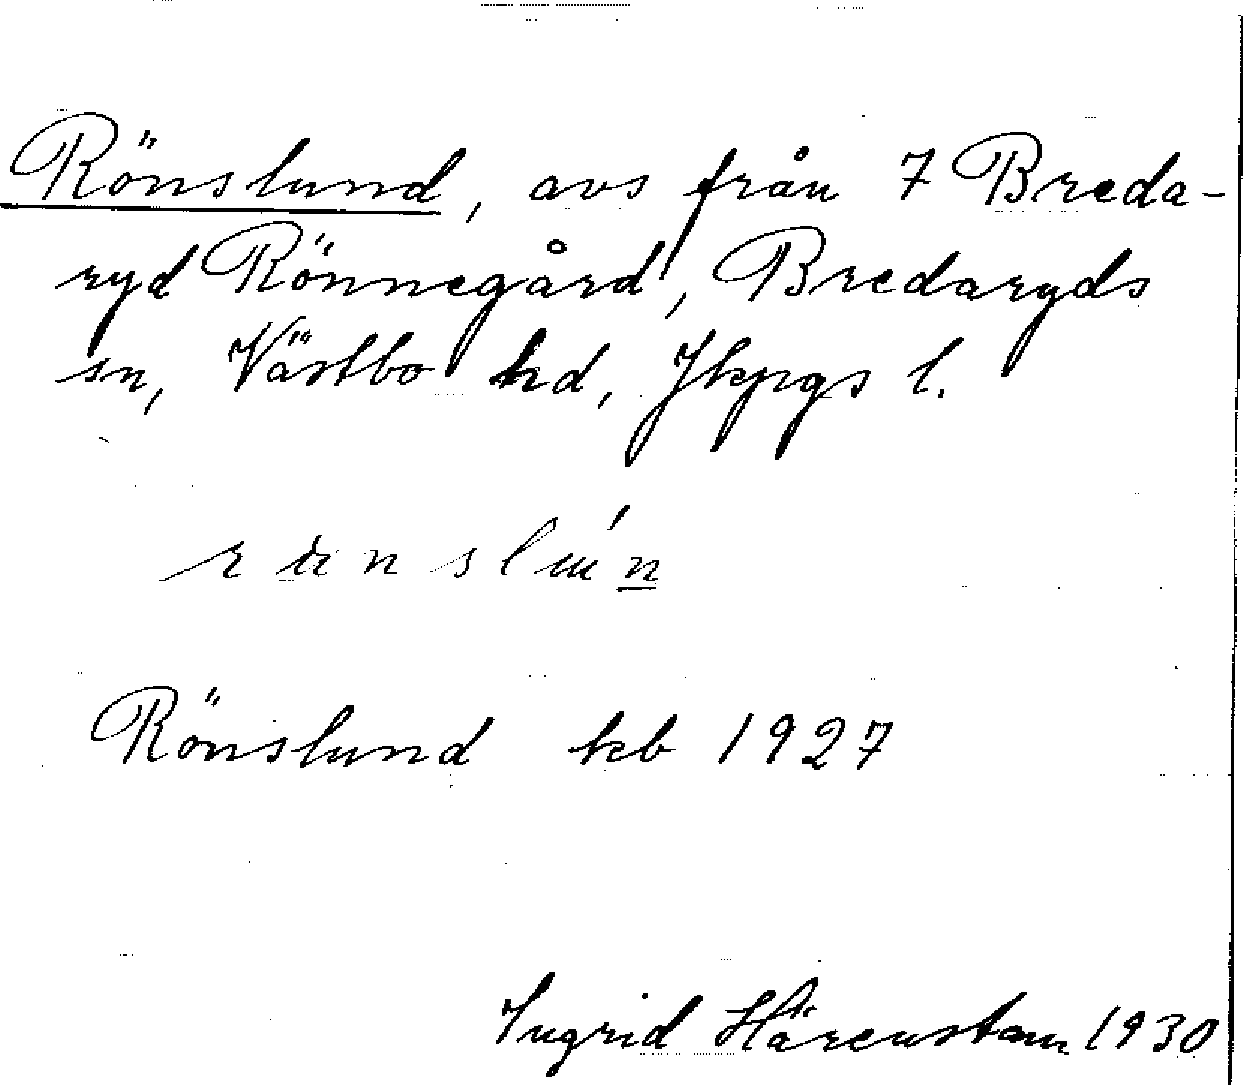 Rönslund, avs från 7 Breda-
ryd Rönnegård, Bredaryds
sn, Västbo hd, Jkpgs l.
Rönslund kb 1927
Ingrid Härenstam 1930